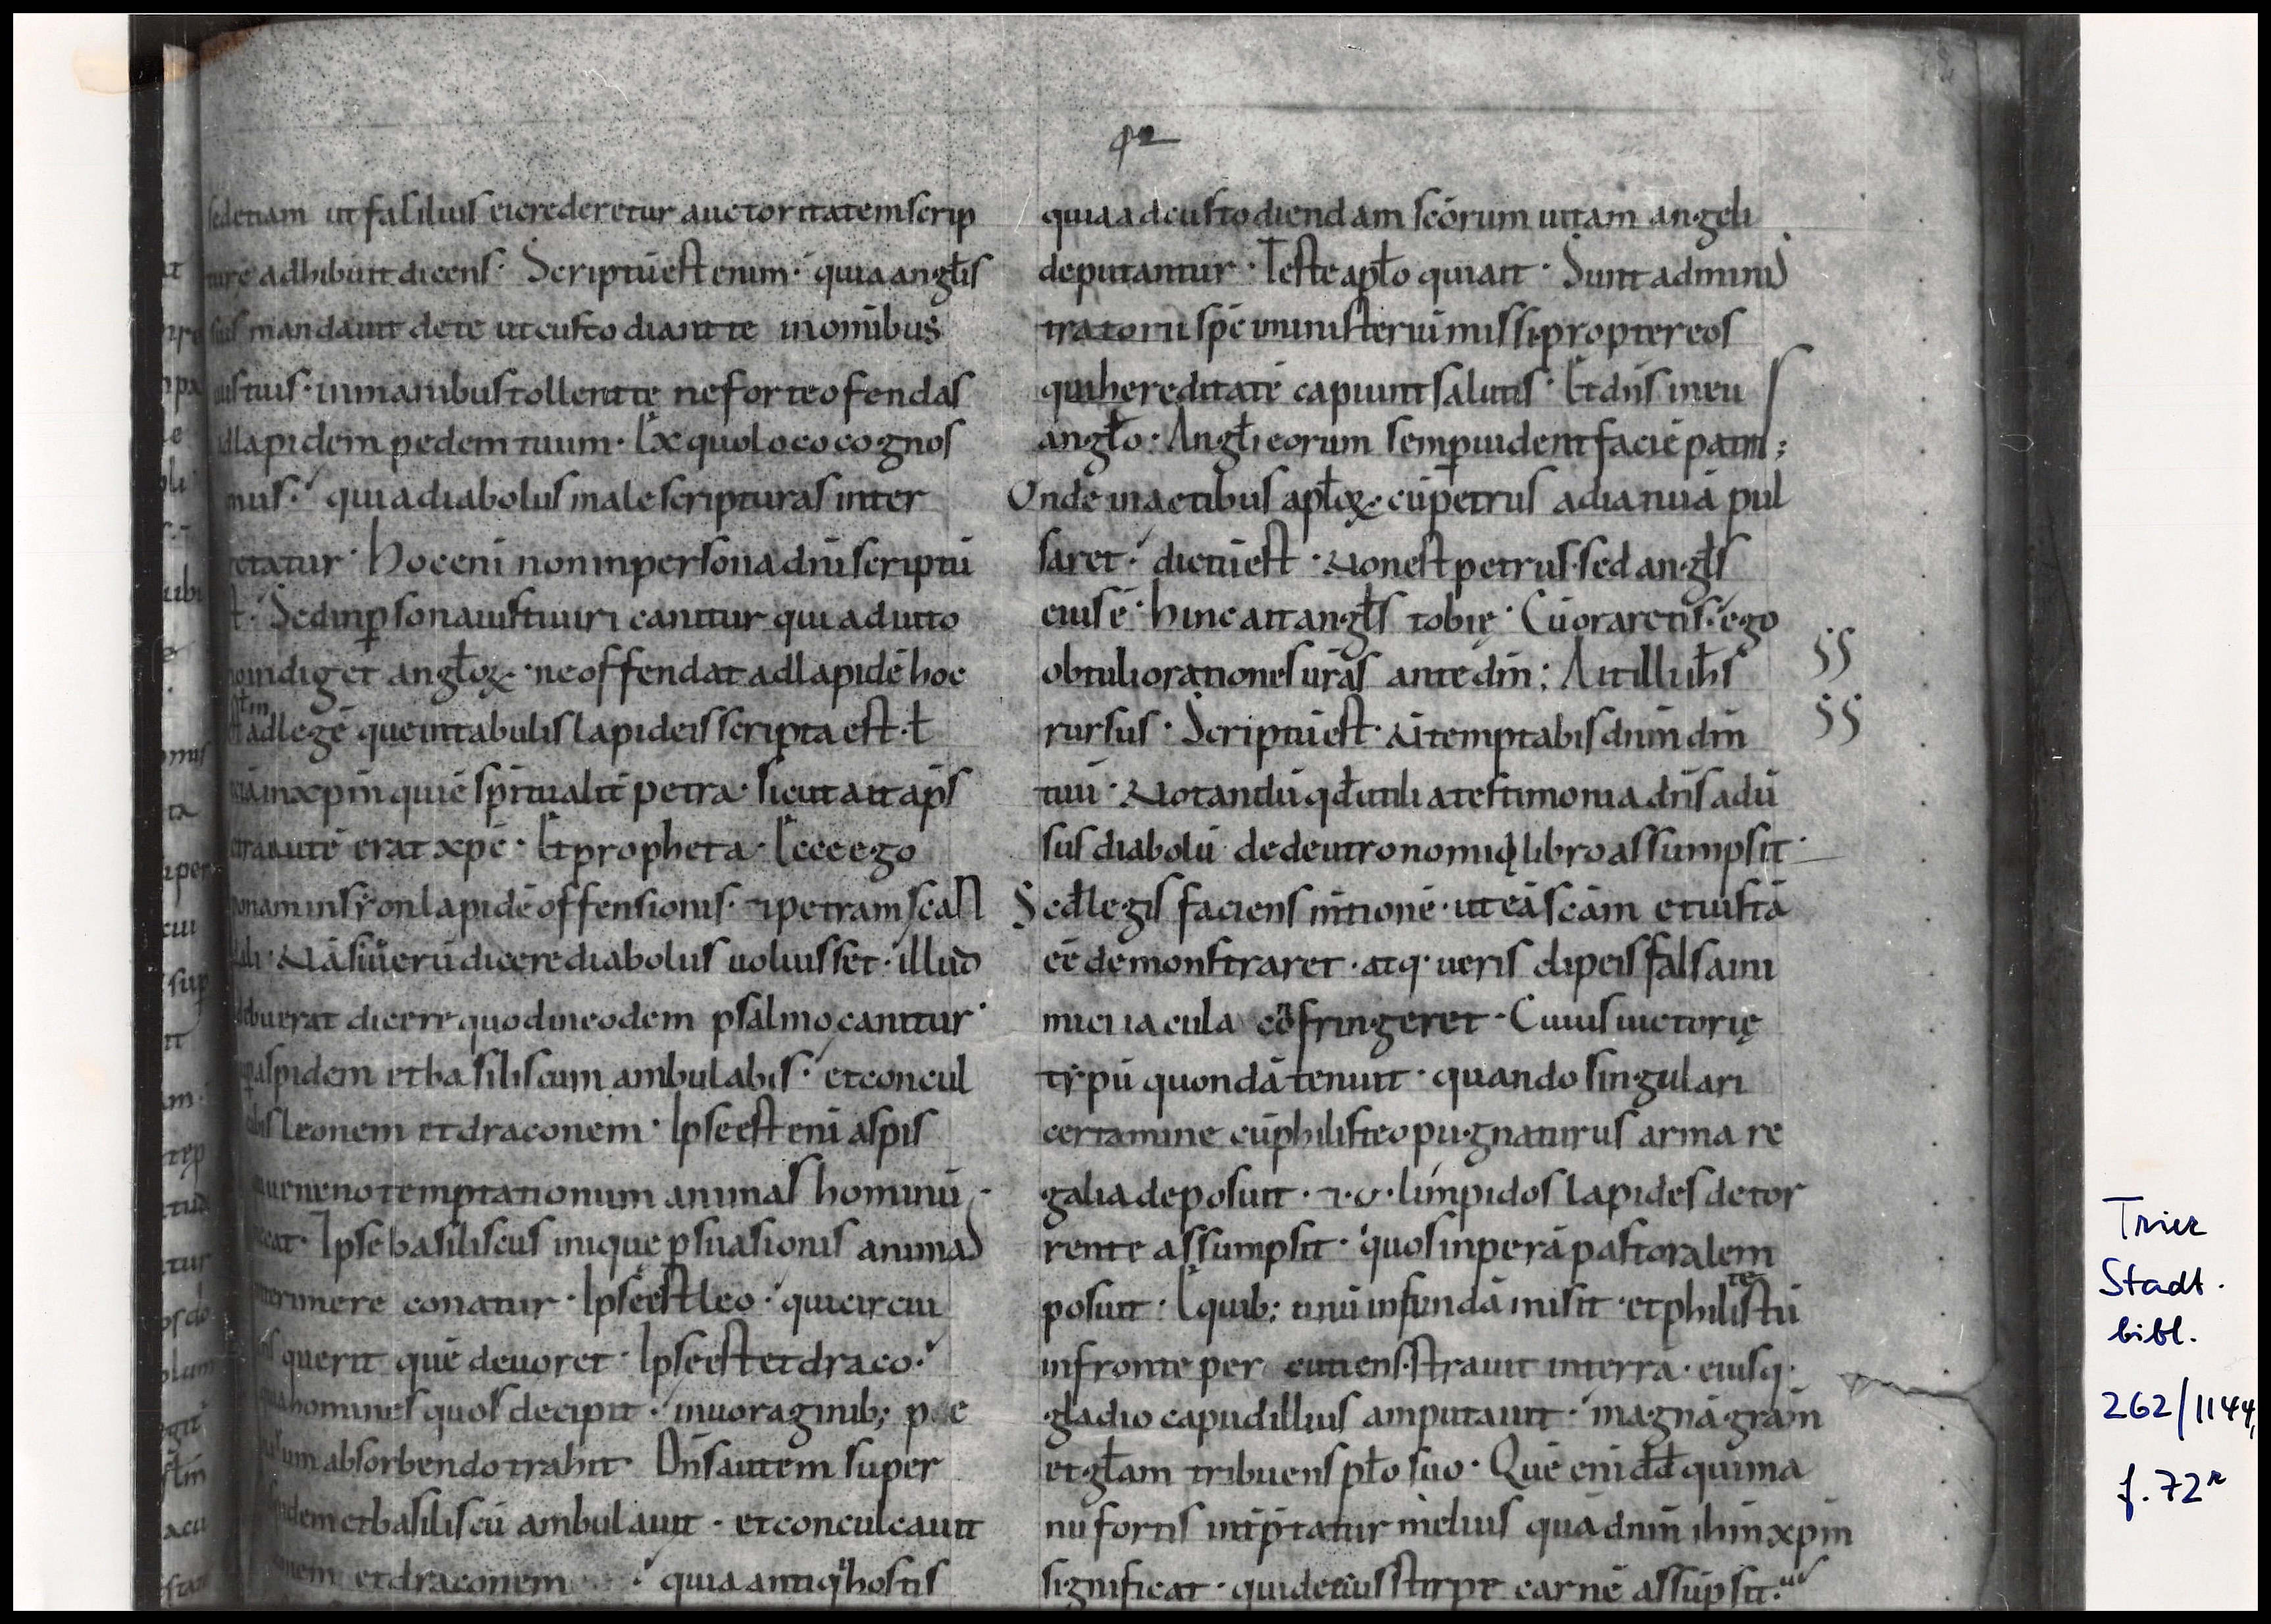 92
sedetiam ut falilius eicrederetur auctoritatem scrip
ture adhibuit dicens· Scriptū est enim· quia angl̄is
suis mandauit dete ut custodiant te inomibus
uiis tuis· inmanibus tollent te ne forte ofendas
adlapidem pedem tuum· Ex quo loco cognos
mus· quia diabolus male scripturas inter
retatur· hoc eni non inpersona dn̄i scriptū
st· Sed inp̱sona iusti uiri canitur qui aduito
indiget anglōꝝ· ne offendat ad lapidē hoc
adlegē que intabulis lapideis scripta est· ł
inxpm̄ qui ē spiritualit̄ petra· sicut ait ap̄s
autē erat xpc̄· Et propheta· Ecce ego
ponam in syon lapidē offensionis· ⁊ petram scan
dali· Nā si uerū dicere diabolus uoluisset· illud
debuerat dicere quod in eodem psalmo canitur·
aspidem et basiliscum ambulabis· et concul
abis leonem et draconem· Ipse est eni aspis
ueneno temptationum animas hominū
necat· Ipse basiliscus inique p̱suasionis animas
interimere conatur· Ipse est leo· qui circui
querit quē deuoret· Ipse est et draco·
homines quos decipit· inuoraginib;
absorbendo trahit· Dn̄s autem super
et basiliscū ambulauit· et conculcauit
et draconem quia antiq' hostis
quia ad custodiendam scōrum uitam angeli
deputantur· Teste apl̄o qui ait· Sunt adminis
tratorii sp̄c inministeriū missi propter eos
qui hereditatē capiunt salutis· Et dn̄s in eu
angl̄o· Angl̄i eorum semp̱ uident faciē patris;
Unde in actibus apl̄oꝝ· cū petrus ad ianuā pul
saret· dictū est· Non est petrus· sed angl̄s
eius ē· hinc ait angl̄s tobię· Cū oraretis· ego
obtuli orationes ūras ante dm̄; Ait illi ih̄s
rursus· Scriptū est· Ñ temptabis dn̄m dm̄
tuū· Notandū qd̄ utilia testimonia dn̄s adū
sus diabolū de deutronomii libro assumpsit·
Sed legis faciens mtionē· ut eā scām et iustā
eē demonstraret· atq· ueris clipeis falsa ini
mici iacula cōfringeret· Cuius uictorię
typū quondā tenuit· quando singulari
certamine cū philisteo pugnaturus arma re
galia deposuit· ⁊·v· limpidos lapides de tor
rente assumpsit· quos in perā pastoralem
posuit· E quib; unū in fundā misit· et philistū
te
in fronte per cutiens· strauit in terrā· eiusq·
gladio capud illius amputauit· magnā grām
et gl̄am tribuens pl̄o suo· Quē eni dd̄ qui ma
nu fortis int̄p̱tatur melius quā dn̄m ih̄m xp̄m
significat· qui de eius stirpe carnē assūpsit·
§§
§§
Trier
Stadt.
bibl.
262/1144,
f. 72r